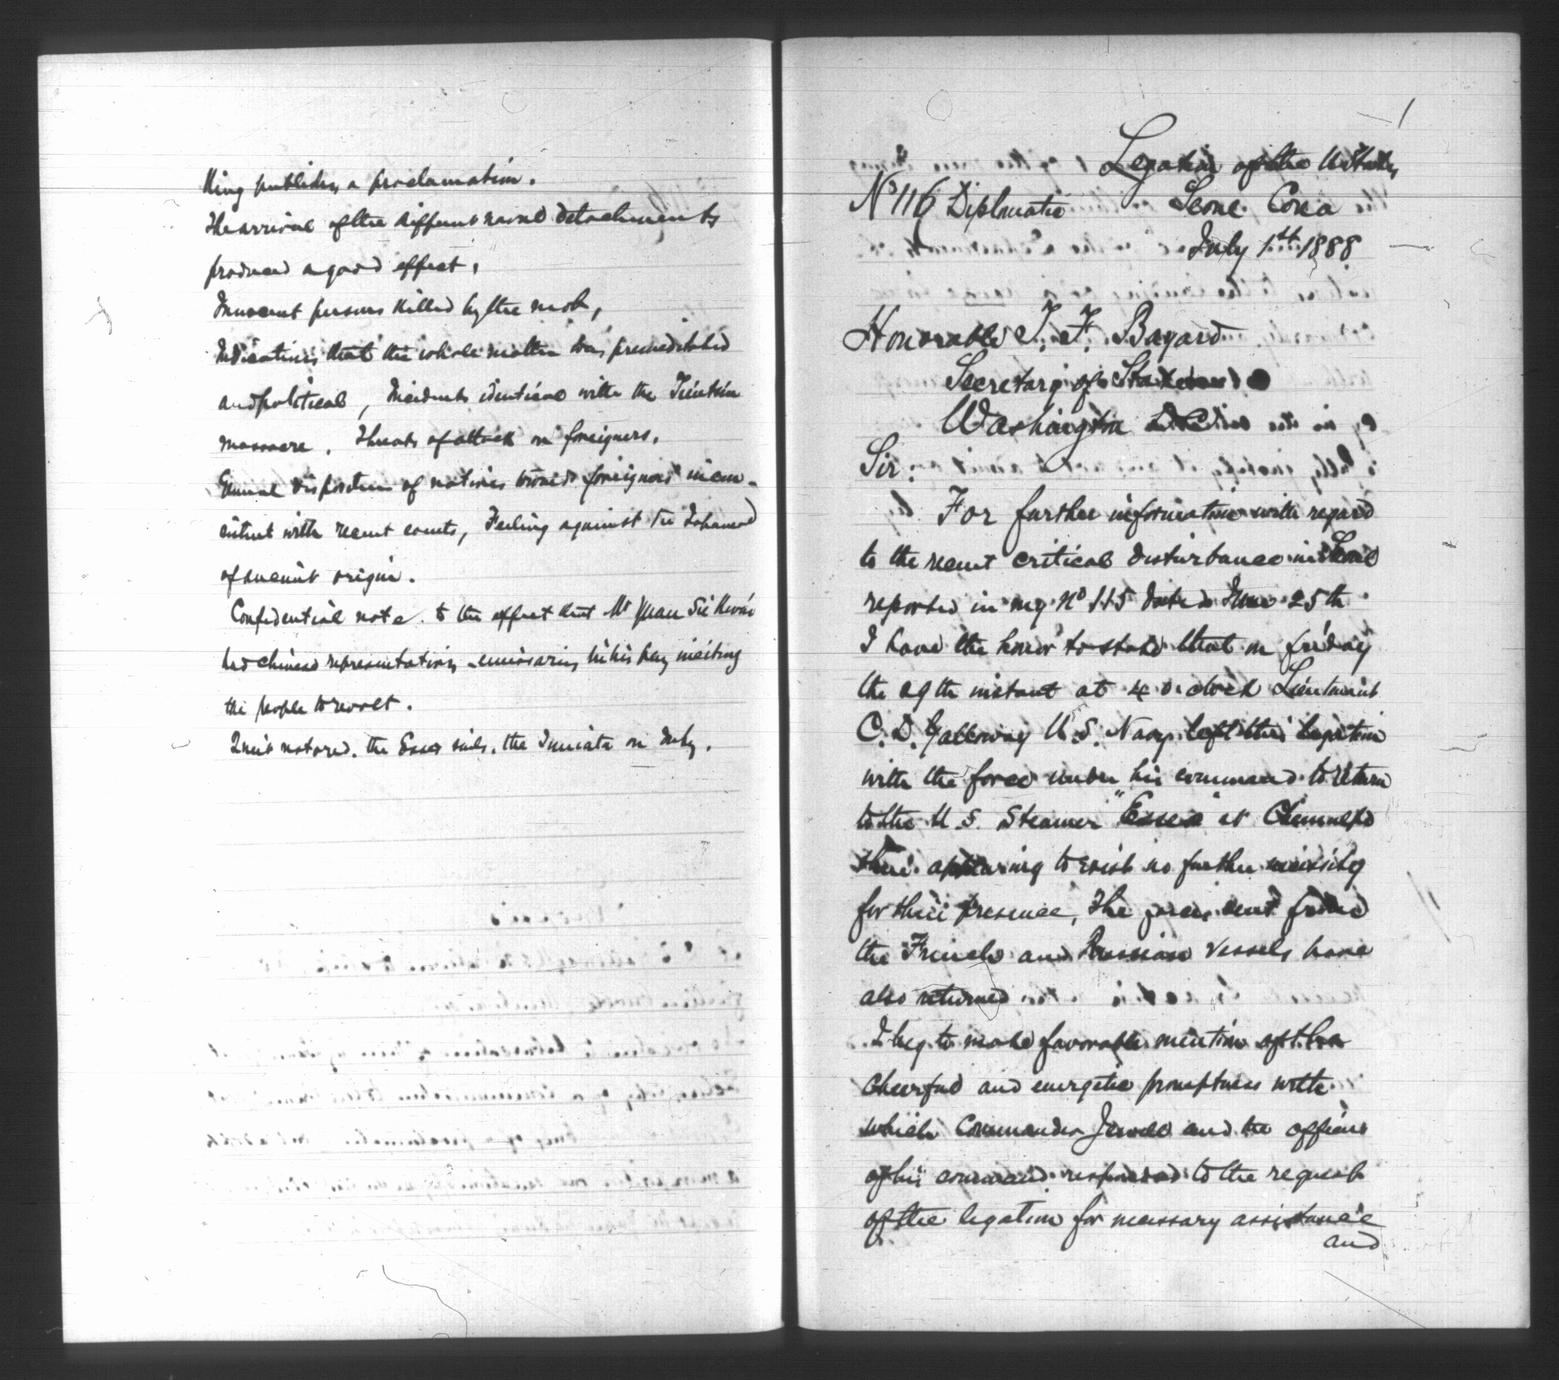 King publishes a proclamation.
The arrival of the different naval detachments
produced a good effect.
Innocent persons killed by the mob,
Indications that the whole matter was premeditated
and political, Incidents identical with the Tientsin
massacre. Threats of attack on foreigners.
General disposition of natives towards foreigners incon-
sistent with recent events, Feeling against the Japanese
of ancient origin.
Confidential note. to the effect that Mr Yuan Sie Kwai
has chinese representative, emissaries in his pay inciting
the people to revolt.
Quiet restored. the Essex sails. the Juniata on duty.
1
Legation of the U States
No 116 Diplomatic Seoul Corea
July 1st 1888
Honorable T. F. Bayard
Secretary of State
Washington
Sir:
For further information with regard
to the recent critical disturbance in Seoul
reported in my No 115 dated June 25th
I have the honor to state that on friday
the 29th instant at 4 o.clock Lieutenant
C. D. Galloway U. S. Navy left this legation
with the force under his command to return
to the U. S. Steamer "Essex" at Chemulpo
there appearing to exist no further necessity
for their presence, The forces sent from
the French and Russian vessels have
also returned.
I beg to make favorable mention of the
cheerful and energetic promptness with
which Commander Jewell and the officers
of his command responded to the request
of the legation for necessary assistance
and